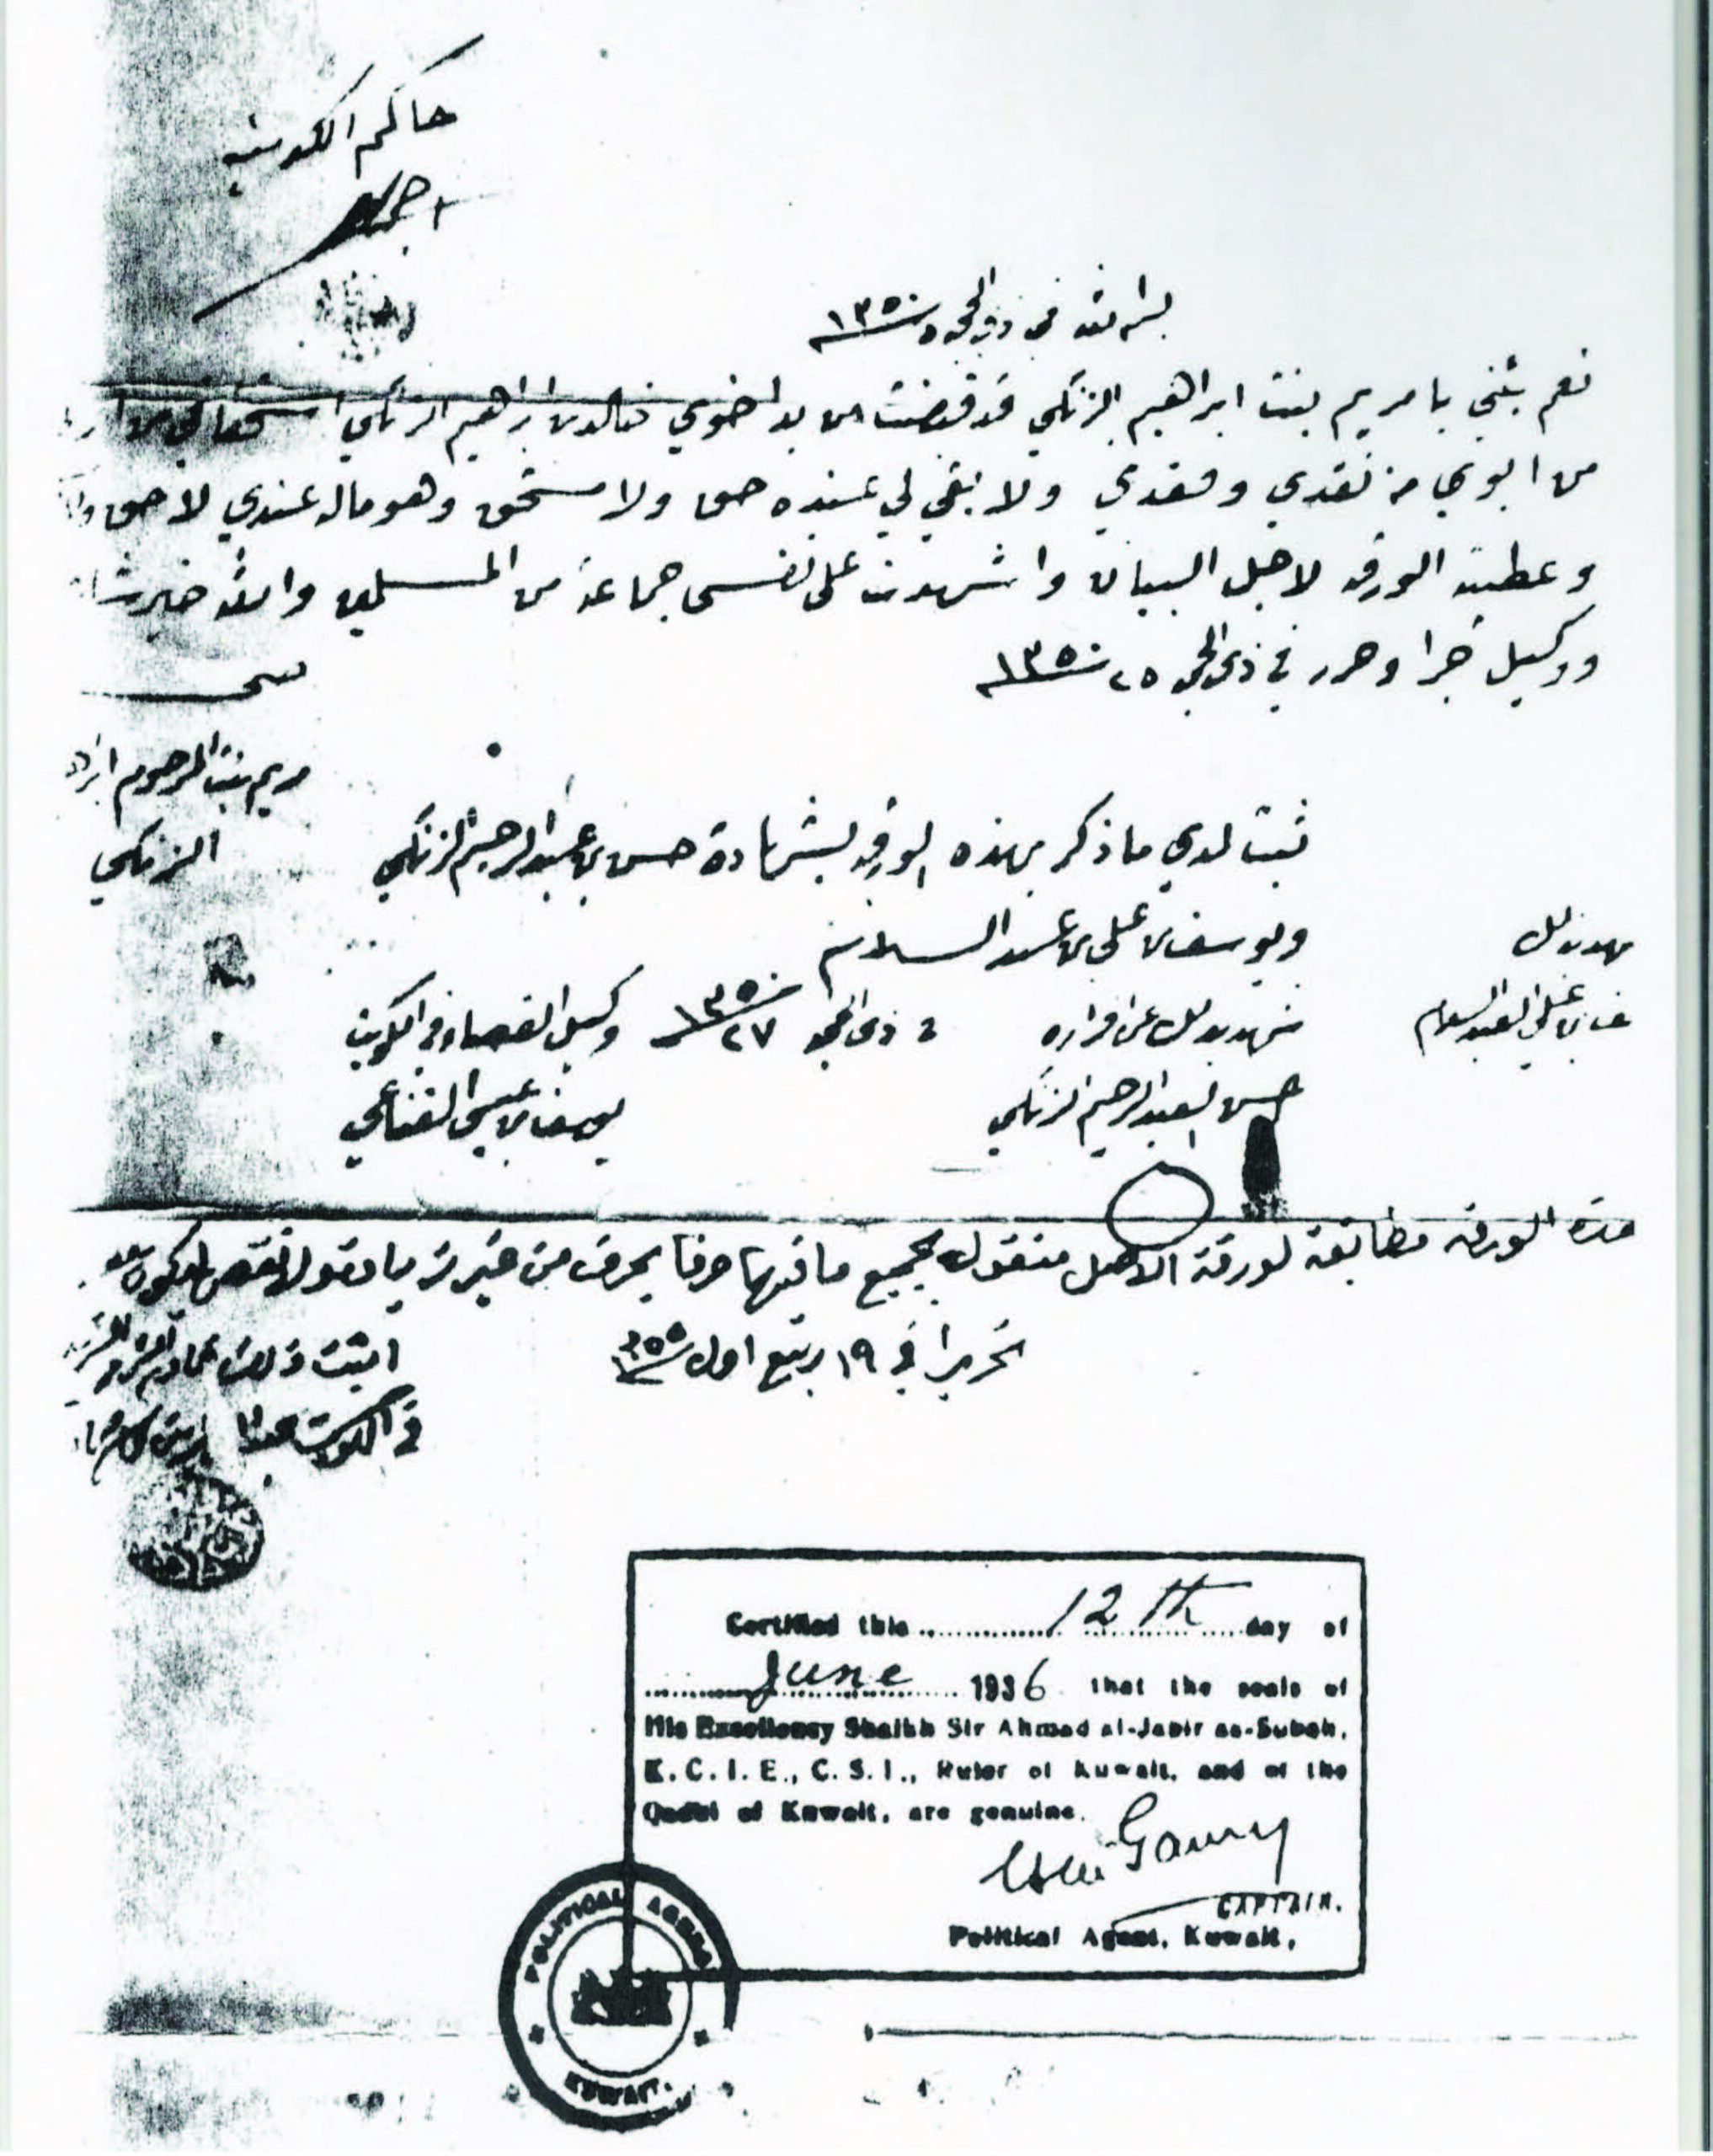 حاكم الكويت
بيانه في ذي الحجه سنة ١٣٥٠
نعم بأني يا مريم بنت ابراهيم الزنكي قد قبضت من يد اخوي خالد بن ابراهيم الزنكي استحقاقي من
من ابوي من نقدي وعقدي ولا بقي لي عنده حق ولا مستحق وهو ماله عندي لا حق
وعطيته الورقه لاجل البيان واشهدت على نفسي جماعة من المسلمين والله خير
ووكيل جرا وحرر في ذي الحجه ٢٥ سنة ١٣٥٠
صح
مريم بنت المرحوم
الزنكي
ثبت لدي ما ذكر بهذه الورقه بشهادة حسن بن عبدالرحيم الزنكي
ويوسف بن علي بن عبدالسلام
شهد بذلك عن اقراره
حسن العبدالرحيم الزنكي
بذلك
بن علي العبدالسلام
ذي الحجه ٢٧ سنة ١٣٥٠
وكيل القضاء في الكويت
يوسف بن عيسى القناعي
هذه الورقه مطابقة لورقة الاصل منقوله بجميع ما فيها حرفا بحرف من غير زيادة ولا نقص
تحريرا في ١٩ ربيع اول سنة ١٣٥٥
اثبت ذلك خادم الشرع
في الكويت
Certified this 12th day of
June 1936 that the seals of
His Excellency Shaikh Sir Ahmad al-Jabir as-Subah,
K.C.I.E., C.S.I., Ruler of Kuwait, and of the
Qadhi of Kuwait, are genuine.
CAPTAIN.
Political Agent, Kuwait.
POLITICAL AGENCY
KUWAIT